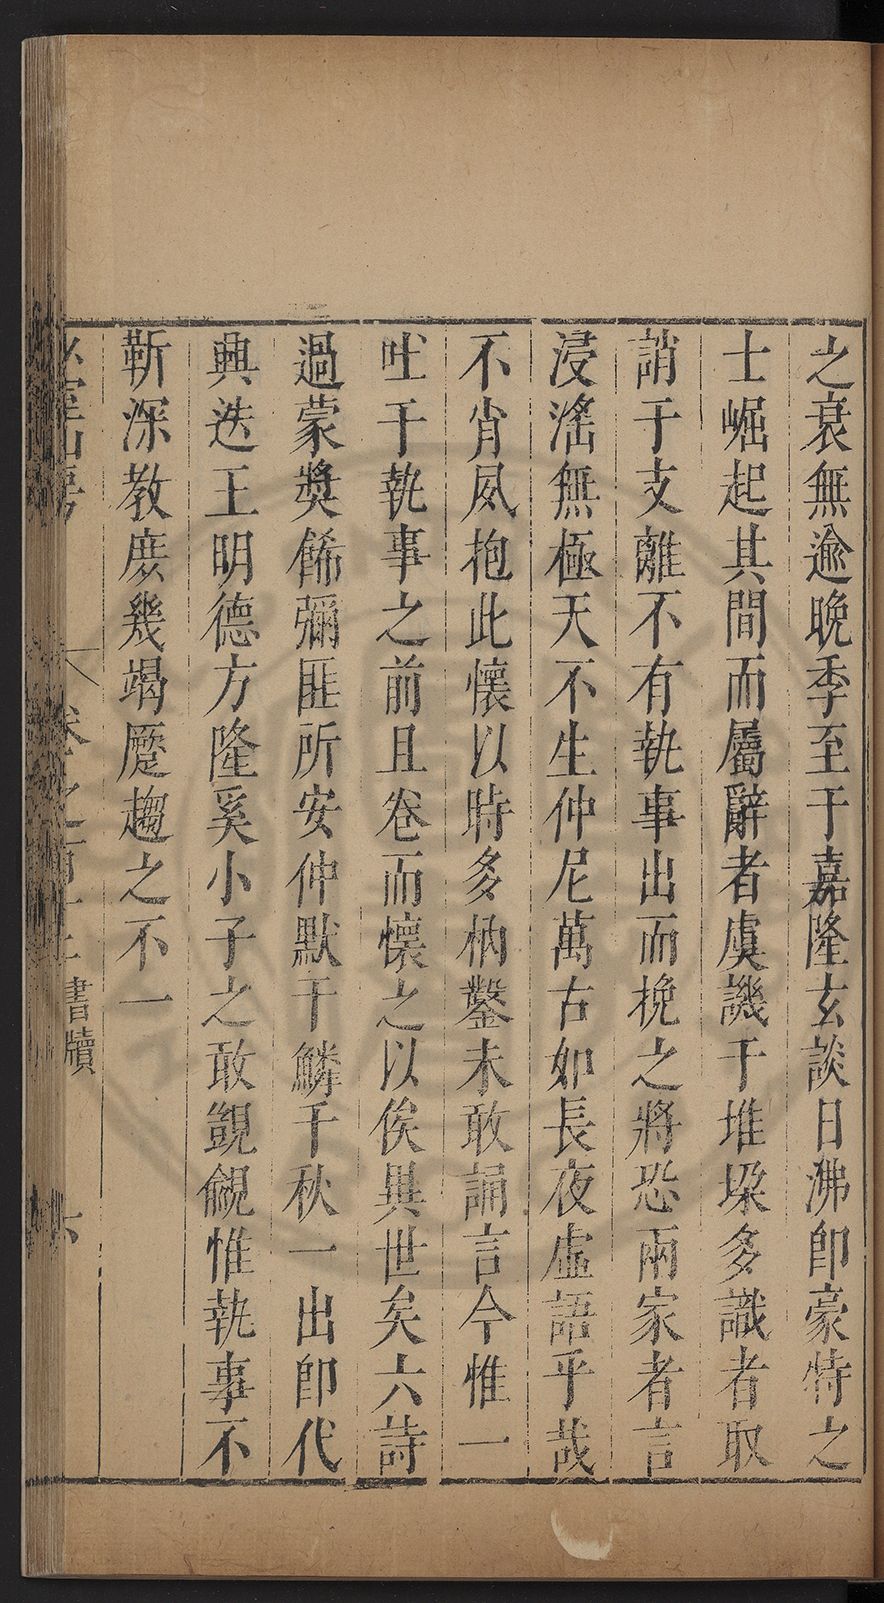 之衰無逾晚季至于嘉隆玄談日沸卽豪特之
士崛起其間而屬辭者虞譏于堆垜多識者取
誚于支離不有執事出而挽之將恐兩家者言
浸滛無極天不生仲尼萬古如長夜虛語乎哉
不肖夙抱此懷以時多枘鑿未敢誦言今惟一
吐于執事之前且卷而懷之以俟異世矣六詩
過蒙奬餙彌匪所安仲默千鱗千秋一出卽代
興迭王明德方隆奚小子之敢覬覦惟執事不
靳深教庶幾竭蹷趨之不一
書牘